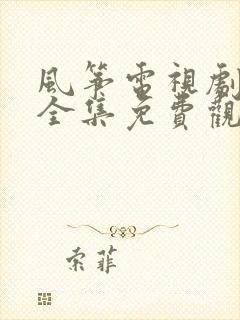 風箏電視劇
全集免費觀
索菲